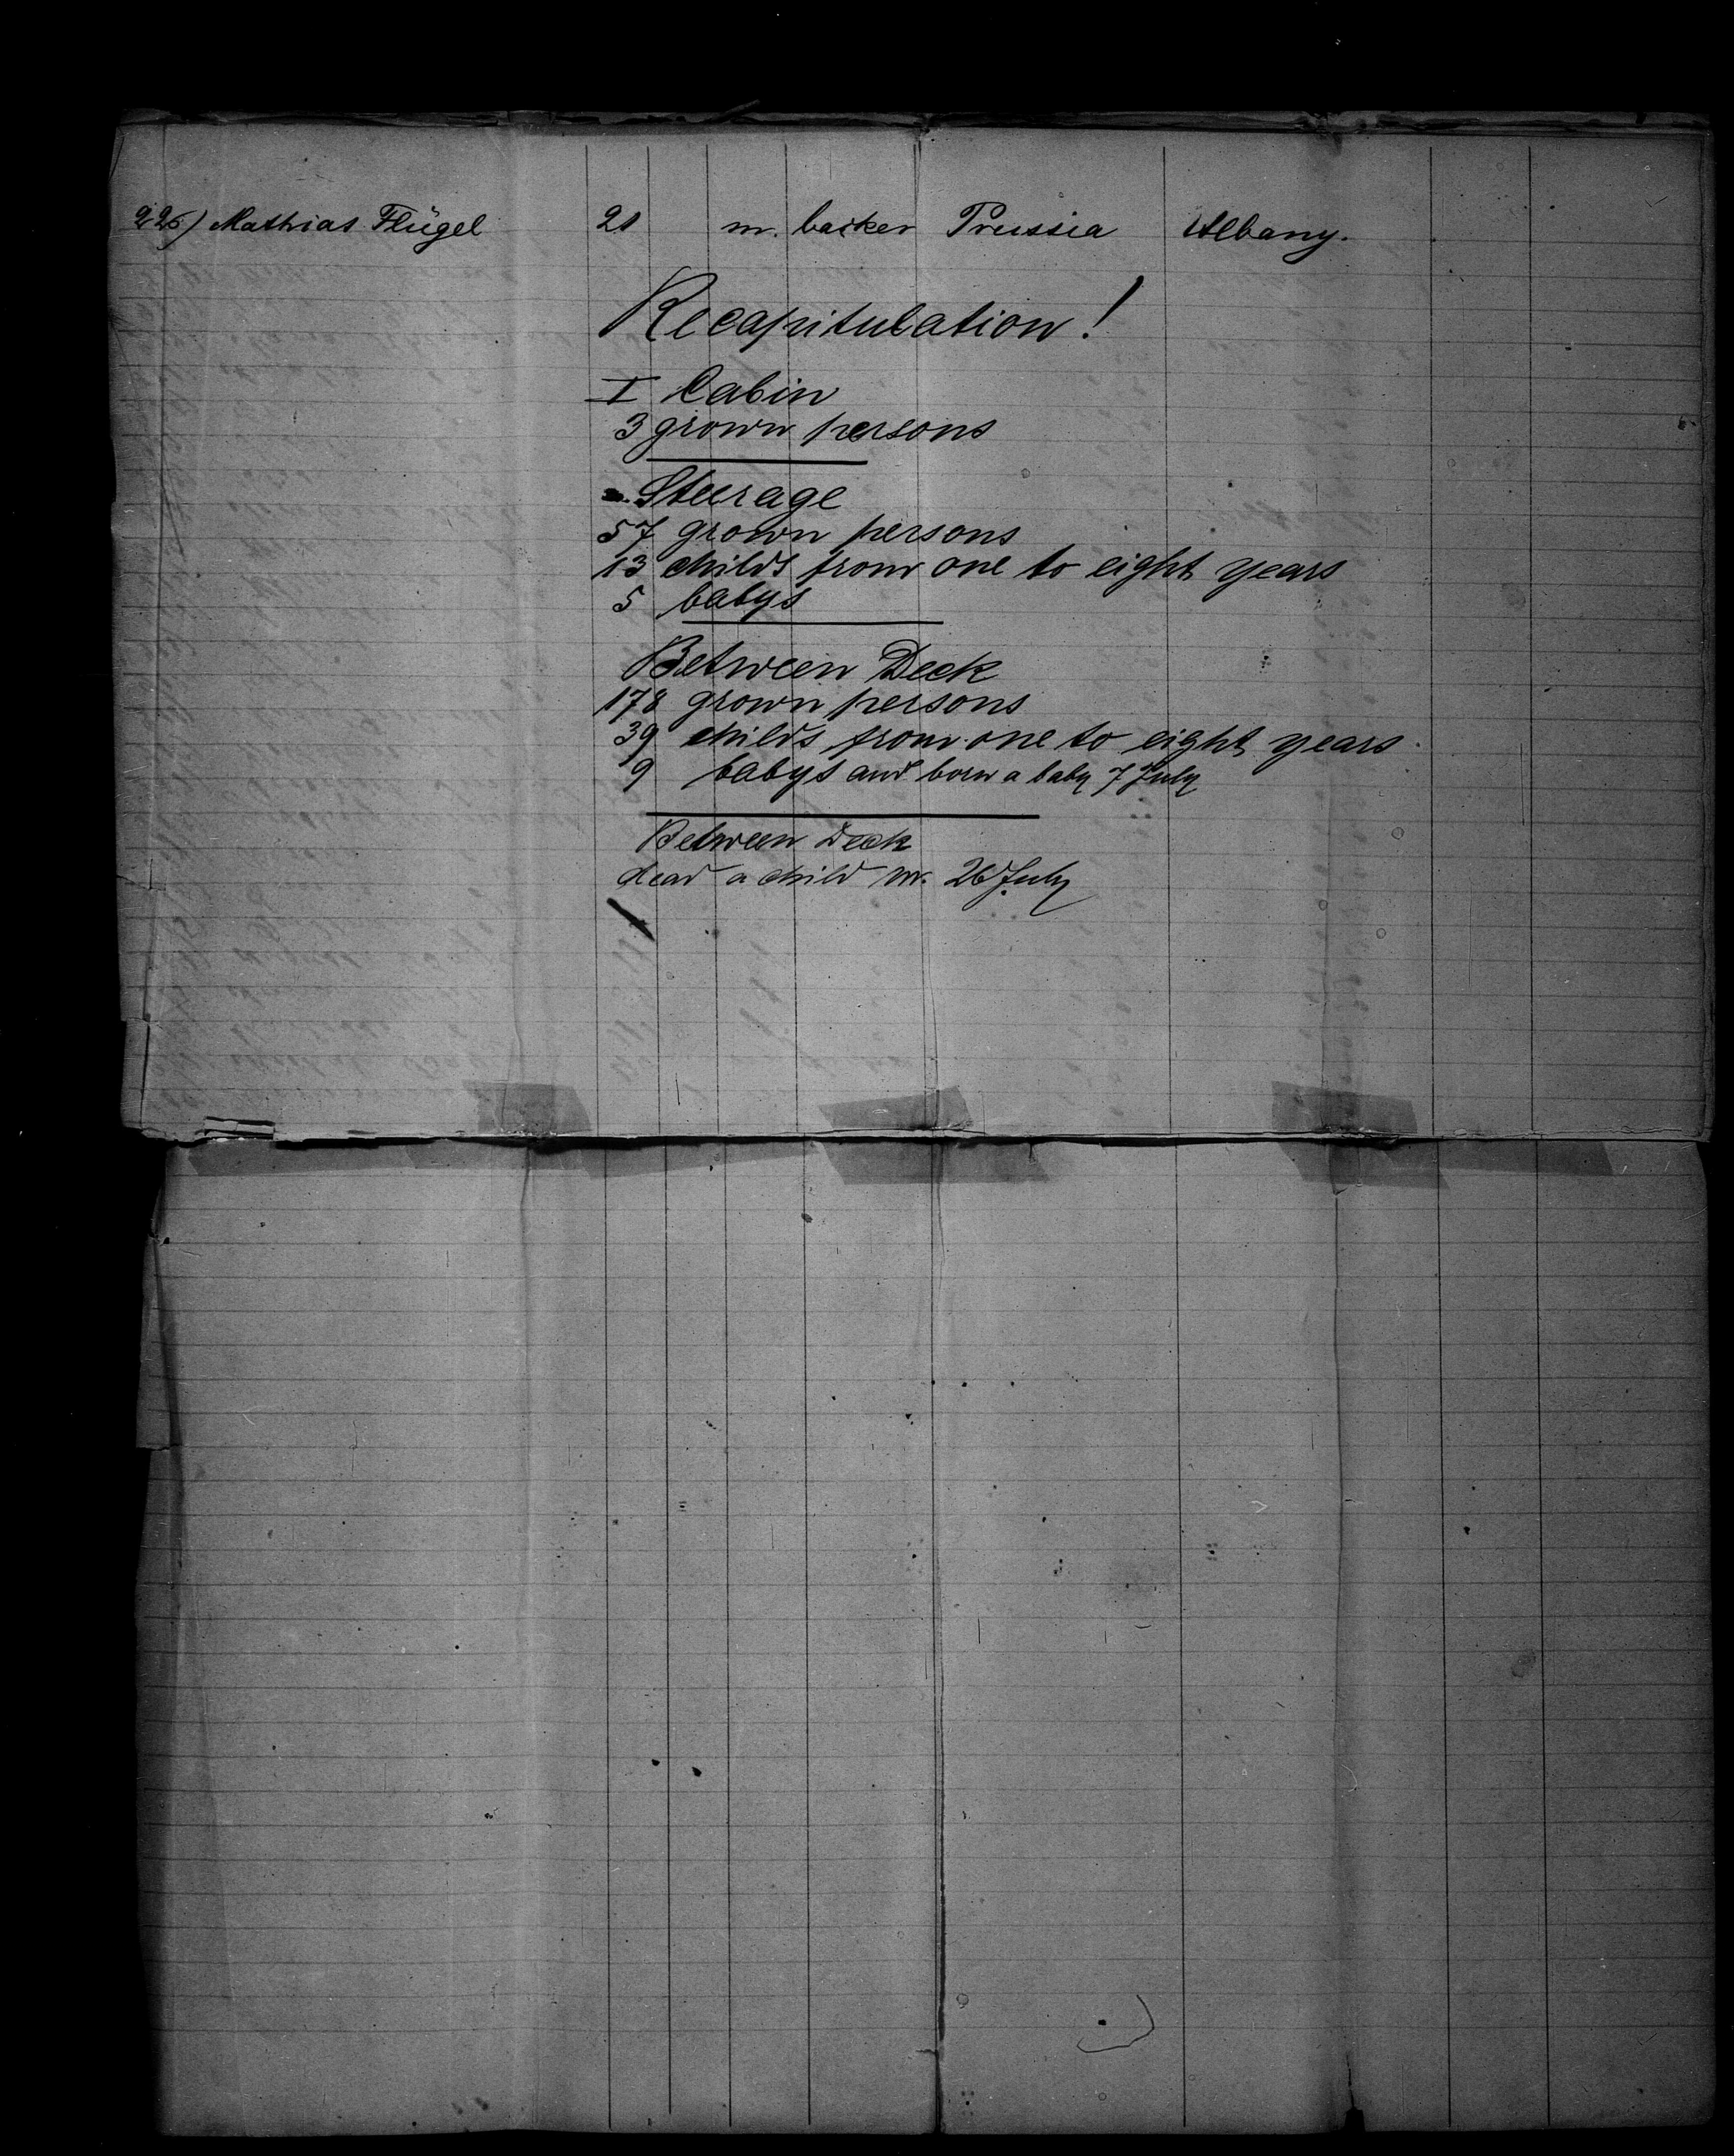 226) Mathias Flügel 21 m. backer Prussia Albany.
Recapitulation!
I Cabin
3 grown persons
Steerage
57 grown persons
13 childs from one to eight years
5 babys
Between Deck
178 grown persons
39 childs from one to eight years
9 babys and born a baby 7 July
Between Deck
dead a child m. 26 July